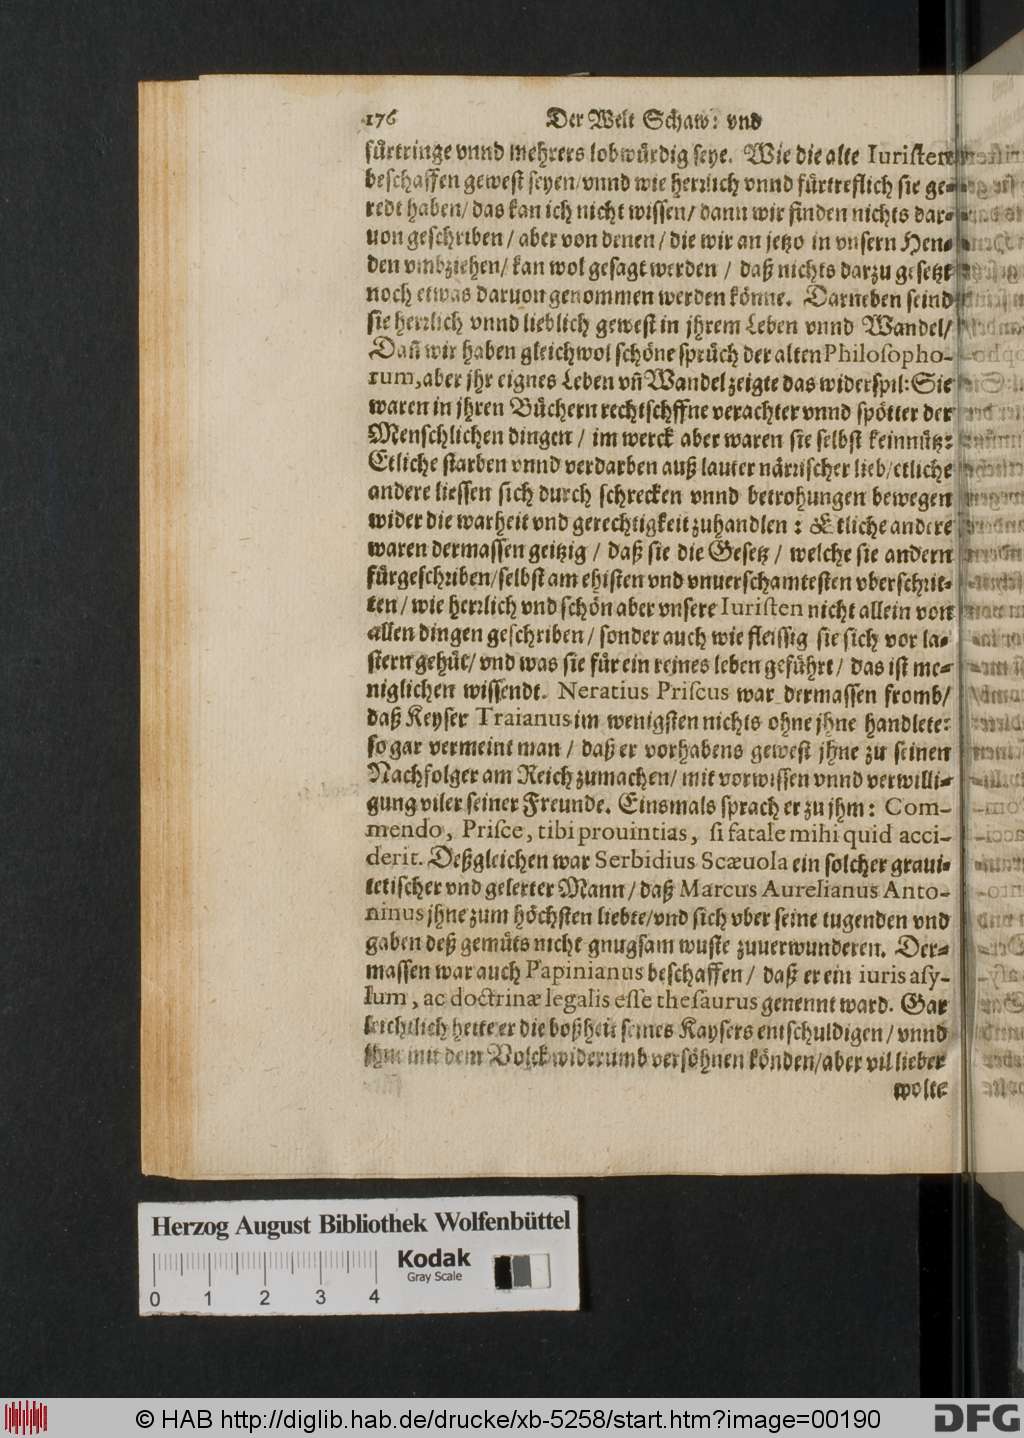 176 Der Welt Schaw: vnd
fürtringe vnnd mehrers lobwürdig seye. Wie die alte Iuristen
beschaffen gewest seyen/vnnd wie herrlich vnnd fürtreflich sie ge-
redt haben/ das kan ich nicht wissen/ dann wir finden nichts dar-
uon geschriben/ aber von denen/ die wir an jetzo in vnsern Hen-
den vmbziehen/ kan wol gesagt werden / daß nichts darzu gesetzt
noch etwas daruon genommen werden könne. Darneben seind
sie herrlich vnnd lieblich gewest in jhrem Leben vnnd Wandel/
Dañ wir haben gleichwol schöne sprüch der alten Philosopho-
rum, aber jhr eignes Leben vñ Wandel zeigte das widerspil: Sie
waren in jhren Büchern rechtschffne verachter vnnd spötter der
Menschlichen dingen / im werck aber waren sie selbst keinnütz:
Etliche starben vnnd verdarben auß lauter närrischer lieb/etliche
andere liessen sich durch schrecken vnnd betrohungen bewegen
wider die warheit vnd gerechtigkeit zuhandlen: Etliche andere
waren dermassen geitzig / daß sie die Gesetz / welche sie andern
fürgeschriben/selbst am ehisten vnd vnuerschamtesten vberschrit-
ten/ wie herrlich vnd schön aber vnsere Iuristen nicht allein von
allen dingen geschriben/ sonder auch wie fleissig sie sich vor la-
stern gehüt/ vnd was sie für ein reines leben geführt/ das ist me-
niglichen wissendt. Neratius Priscus war dermassen fromb/
daß Keyser Traianus im wenigsten nichts ohne jhne handlete:
so gar vermeint man / daß er vorhabens gewest jhne zu seinen
Nachfolger am Reich zumachen/ mit vorwissen vnnd verwilli-
gung viler seiner Freunde. Einsmals sprach er zu jhm: Com-
mendo, Prisce, tibi prouintias, si fatale mihi quid acci-
derit. Deßgleichen war Serbidius Scæuola ein solcher graui-
tetischer vnd gelerter Mann/ daß Marcus Aurelianus Anto-
ninus jhne zum höchsten liebte/vnd sich vber seine tugenden vnd
gaben deß gemüts nicht gnugsam wuste zuuerwunderen. Der-
massen war auch Papinianus beschaffen/ daß er ein iuris asy-
lum, ac doctrinæ legalis esse thesaurus genennt ward. Gar
leichtlich hette er die boßheit seines Kaysers entschuldigen/ vnnd
jhm mit dem Volck widerumb versöhnen könden/aber vil lieber
wolte
Herzog August Bibliothek Wolfenbüttel
Kodak
Gray Scale
0 1 2 3 4
© HAB http://diglib.hab.de/drucke/xb-5258/start.htm?image=00190
DFG